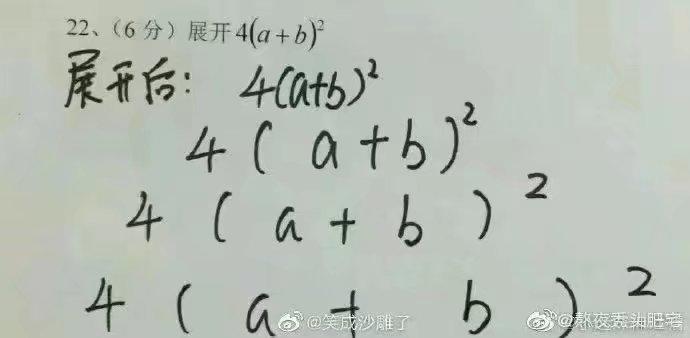 22、（6 分）展开 4(a+b)²
展开后： 4(a+b)²
4 ( a+b)²
4 ( a + b )²
4 ( a + b )²
@笑成沙雕了
@熬夜秃头肥宅